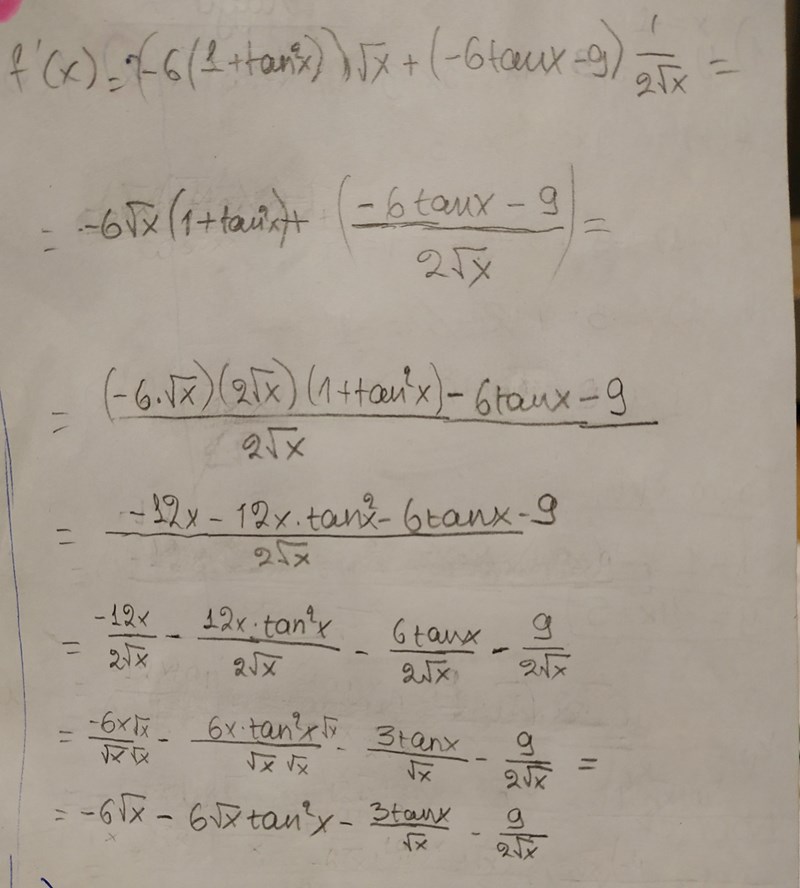 f'(x) = (-6(1+tan²x))√x + (-6tanx-9) 1/(2√x) =
= -6√x(1+tan²x) + ((-6tanx-9)/(2√x)) =
= ((-6·√x)(2√x)(1+tan²x)-6tanx-9)/(2√x)
= (-12x-12x·tan²x-6tanx-9)/(2√x)
= (-12x)/(2√x) - (12x·tan²x)/(2√x) - (6tanx)/(2√x) - 9/(2√x)
= (-6x√x)/(√x √x) - (6x·tan²x√x)/(√x √x) - (3tanx)/(√x) - 9/(2√x) =
= -6√x - 6√x tan²x - (3tanx)/(√x) - 9/(2√x)